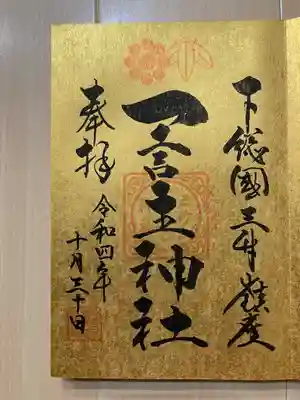 下総國三竹山鎮座
一言主神社
奉拝
令和四年
十月三十日